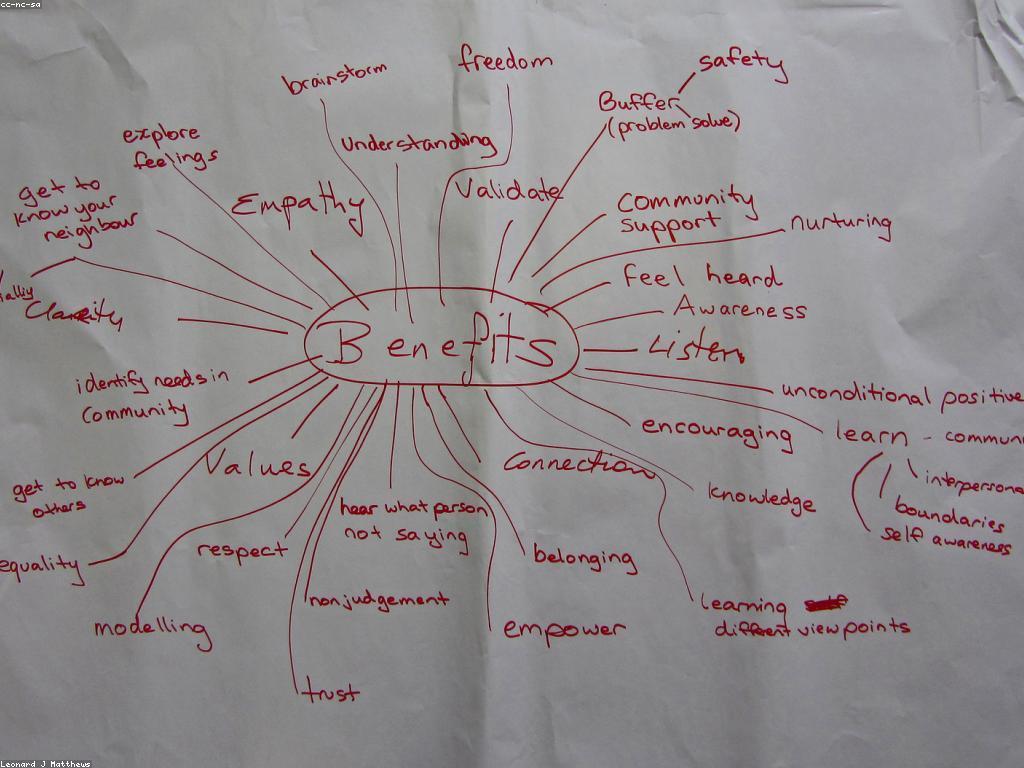 cc-nc-sa
brainstorm
freedom
safety
Buffer
(problem solve)
explore
feelings
Understanding
Validate
Empathy
get to
know your
neighbour
Community
support
nurturing
feel heard
Awareness
Clarity
Benefits
Listen
identify needs in
community
unconditional positive
encouraging
learn -
interpersonal
boundaries
self awareness
Values
Connection
knowledge
get to know
others
hear what person
not saying
respect
belonging
equality
nonjudgement
learning
different viewpoints
modelling
empower
trust
Leonard J Matthews